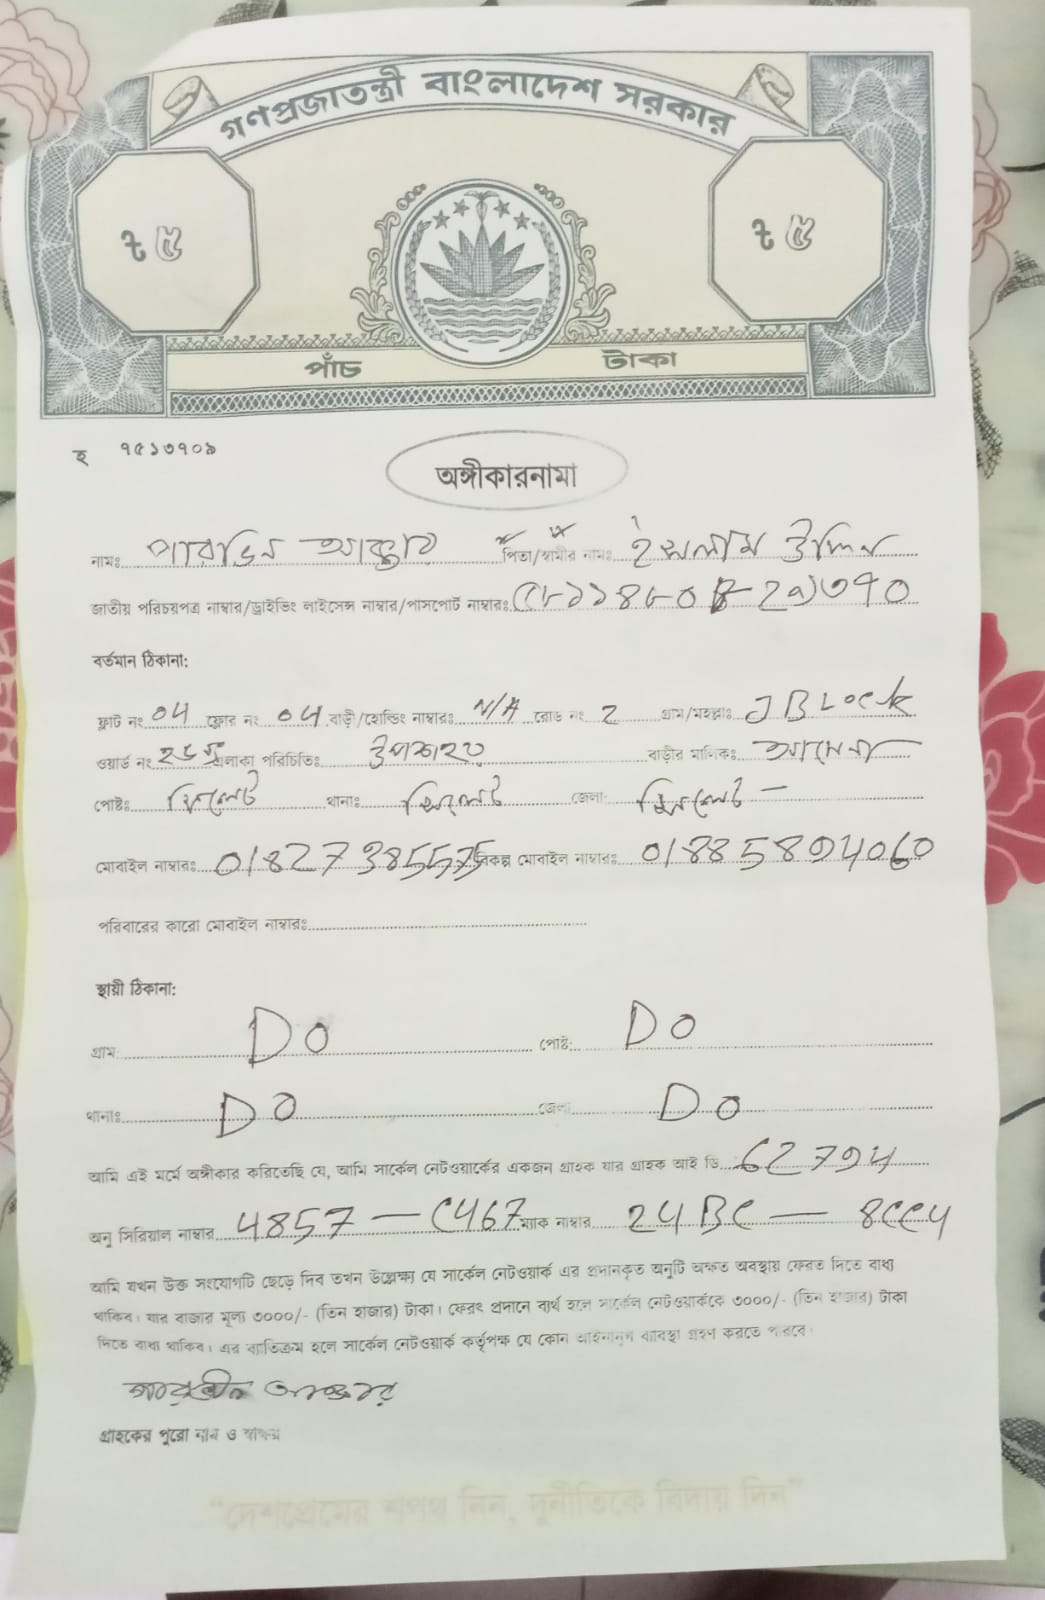 গণপ্রজাতন্ত্রী বাংলাদেশ সরকার
৳ ৫ ৳ ৫
পাঁচ টাকা
হ ৭৫১৩৭০৯
অঙ্গীকারনামা
নামঃ পারভিন আক্তার পিতা/স্বামীর নামঃ ইসলাম উদ্দিন
জাতীয় পরিচয়পত্র নাম্বার/ড্রাইভিং লাইসেন্স নাম্বার/পাসপোর্ট নাম্বারঃ
বর্তমান ঠিকানা:
ফ্লাট নং 04 ফ্লোর নং 04 বাড়ী/হোল্ডিং নাম্বারঃ N/A রোড নং 2 গ্রাম/মহল্লাঃ J BLock
ওয়ার্ড নং এলাকা পরিচিতিঃ উপশহর বাড়ীর মালিকঃ
পোষ্টঃ সিলেট থানাঃ সিলেট জেলা: সিলেট
মোবাইল নাম্বারঃ 01827385575 বিকল্প মোবাইল নাম্বারঃ 01885894060
পরিবারের কারো মোবাইল নাম্বারঃ
স্থায়ী ঠিকানা:
গ্রাম: DO পোষ্ট: DO
থানাঃ DO জেলা: DO
আমি এই মর্মে অঙ্গীকার করিতেছি যে, আমি সার্কেল নেটওয়ার্কের একজন গ্রাহক যার গ্রাহক আই ডি 62794
অনু সিরিয়াল নাম্বার 4857 — C467 ম্যাক নাম্বার 24BC — 8CC4
আমি যখন উক্ত সংযোগটি ছেড়ে দিব তখন উল্লেক্ষ্য যে সার্কেল নেটওয়ার্ক এর প্রদানকৃত অনুটি অক্ষত অবস্থায় ফেরত দিতে বাধ্য
থাকিব। যার বাজার মূল্য ৩০০০/- (তিন হাজার) টাকা। ফেরৎ প্রদানে ব্যর্থ হলে সার্কেল নেটওয়ার্ককে ৩০০০/- (তিন হাজার) টাকা
দিতে বাধ্য থাকিব। এর ব্যতিক্রম হলে সার্কেল নেটওয়ার্ক কর্তৃপক্ষ যে কোন আইনানুগ ব্যবস্থা গ্রহণ করতে পারবে।
পারভীন আক্তার
গ্রাহকের পুরো নাম ও স্বাক্ষর
"দেশপ্রেমের শপথ নিন, দুর্নীতিকে বিদায় দিন"